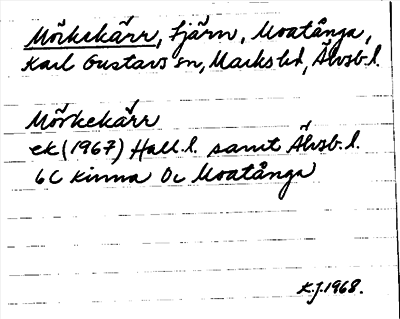 Mörkekärr, fjärn, Moatånga,
Karl Gustavs sn, Marks hd, Älvsb.l.
Mörkekärr
ek (1967) Hall.l. samt Älvsb.l.
6C Kinna 0c Moatånga
K.J. 1968.